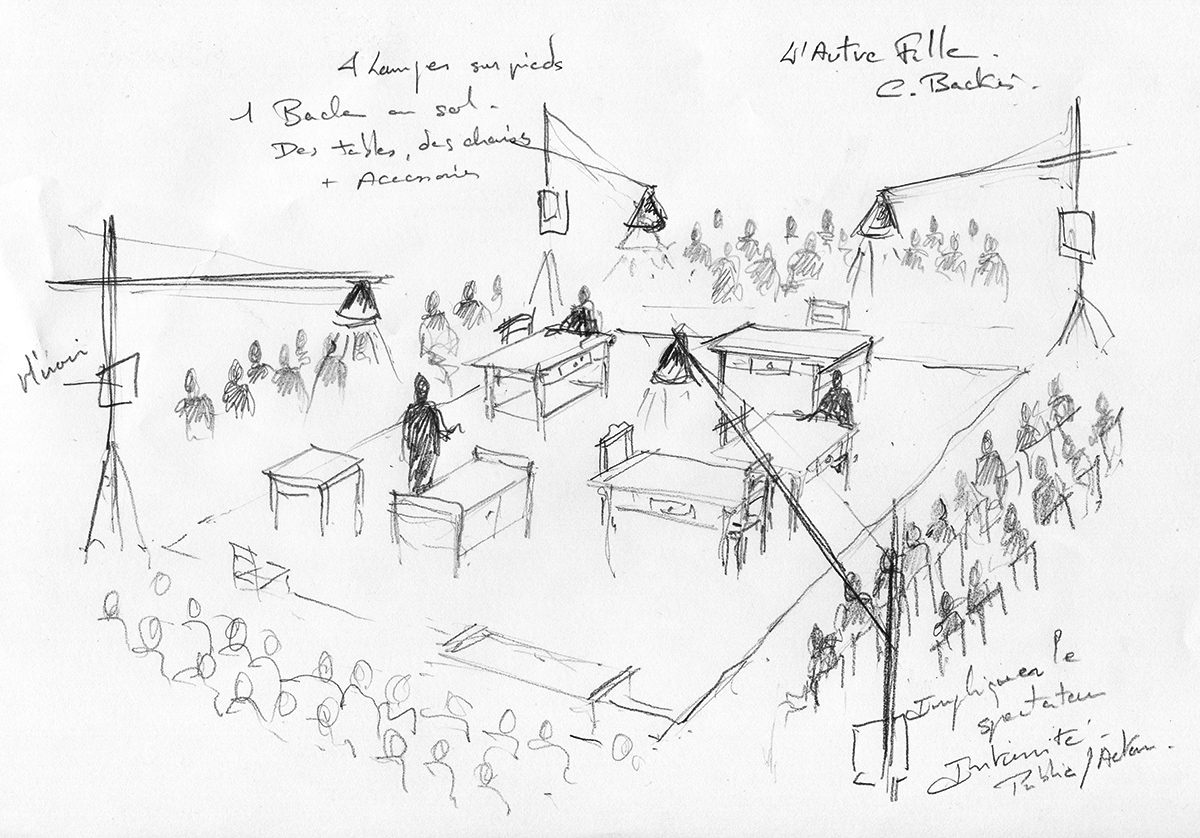 4 Lampes sur pieds
1 Bache au sol.
Des tables, des chaises
+ Accessoires
L'Autre Fille.
C. Backès.
Miroir
Impliquer le
spectateur
Intimité
Public / Acteur.